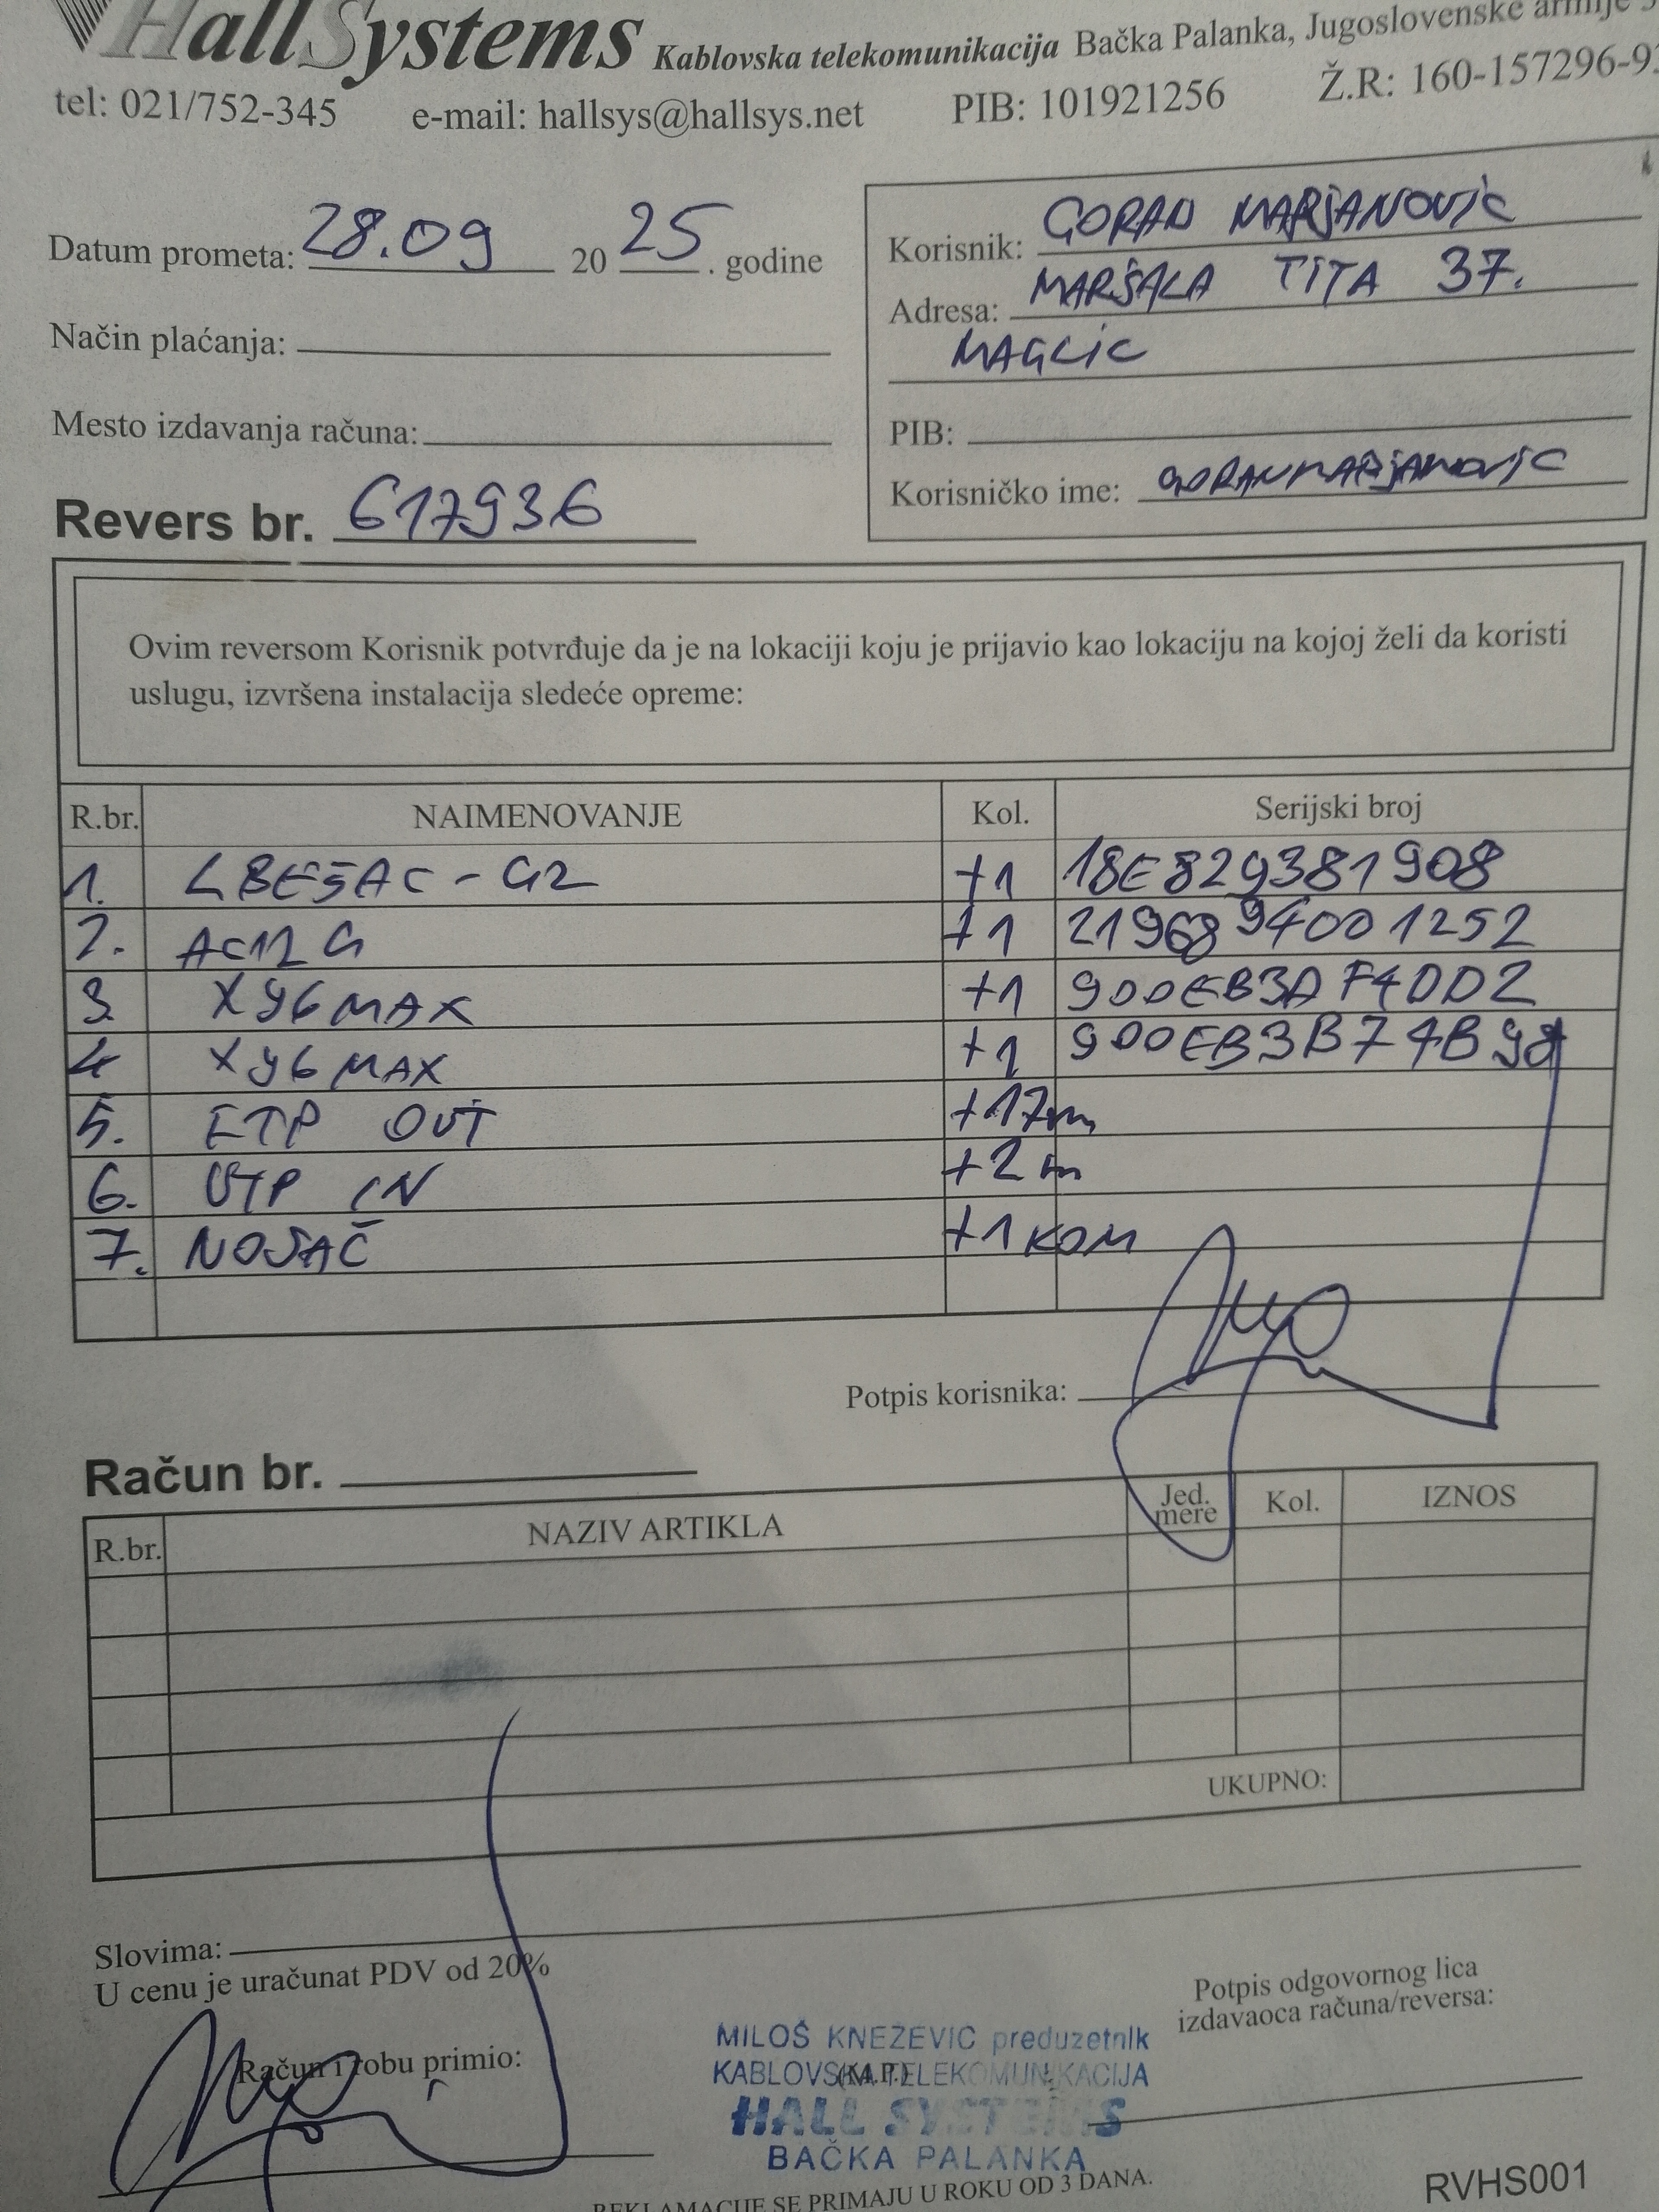 HallSystems Kablovska telekomunikacija Bačka Palanka, Jugoslovenske armije
tel: 021/752-345 e-mail: hallsys@hallsys.net PIB: 101921256 Ž.R: 160-157296-9
Datum prometa: 28.09 2025. godine
Način plaćanja:
Mesto izdavanja računa:
Revers br. 617936
Korisnik: GORAN MARJANOVIĆ
Adresa: MARŠALA TITA 37.
MAGLIĆ
PIB:
Korisničko ime: GORANMARJANOVIC
Ovim reversom Korisnik potvrđuje da je na lokaciji koju je prijavio kao lokaciju na kojoj želi da koristi
uslugu, izvršena instalacija sledeće opreme:
R.br. NAIMENOVANJE Kol. Serijski broj
1. LBE5AC-G2 +1 18E829381908
2. AC12 G +1 2196894001252
3. X96 MAX +1 900EB3DAF4DD2
4 X96 MAX +1 900EB3B74B98
5. FTP OUT +17m
6. UTP IN +2m
7. NOSAČ +1 KOM
Potpis korisnika:
Račun br.
R.br. NAZIV ARTIKLA Jed. mere Kol. IZNOS
UKUPNO:
Slovima:
U cenu je uračunat PDV od 20%
Potpis odgovornog lica
izdavaoca računa/reversa:
Račun i robu primio:
MILOŠ KNEŽEVIĆ preduzetnik
KABLOVSKA TELEKOMUNIKACIJA
(M.P.)
HALL SYSTEMS
BAČKA PALANKA
REKLAMACIJE SE PRIMAJU U ROKU OD 3 DANA.
RVHS001